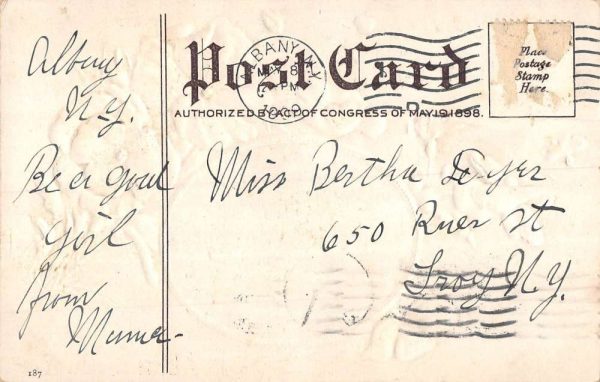 Post Card
AUTHORIZED BY ACT OF CONGRESS OF MAY 19, 1898.
ALBANY, N.Y.
MAY 8
PM
1909
Place
Postage
Stamp
Here.
Albany
N.Y.
Be a good
girl
from
Mama
Miss Bertha
650 River st
Troy N.Y.
187